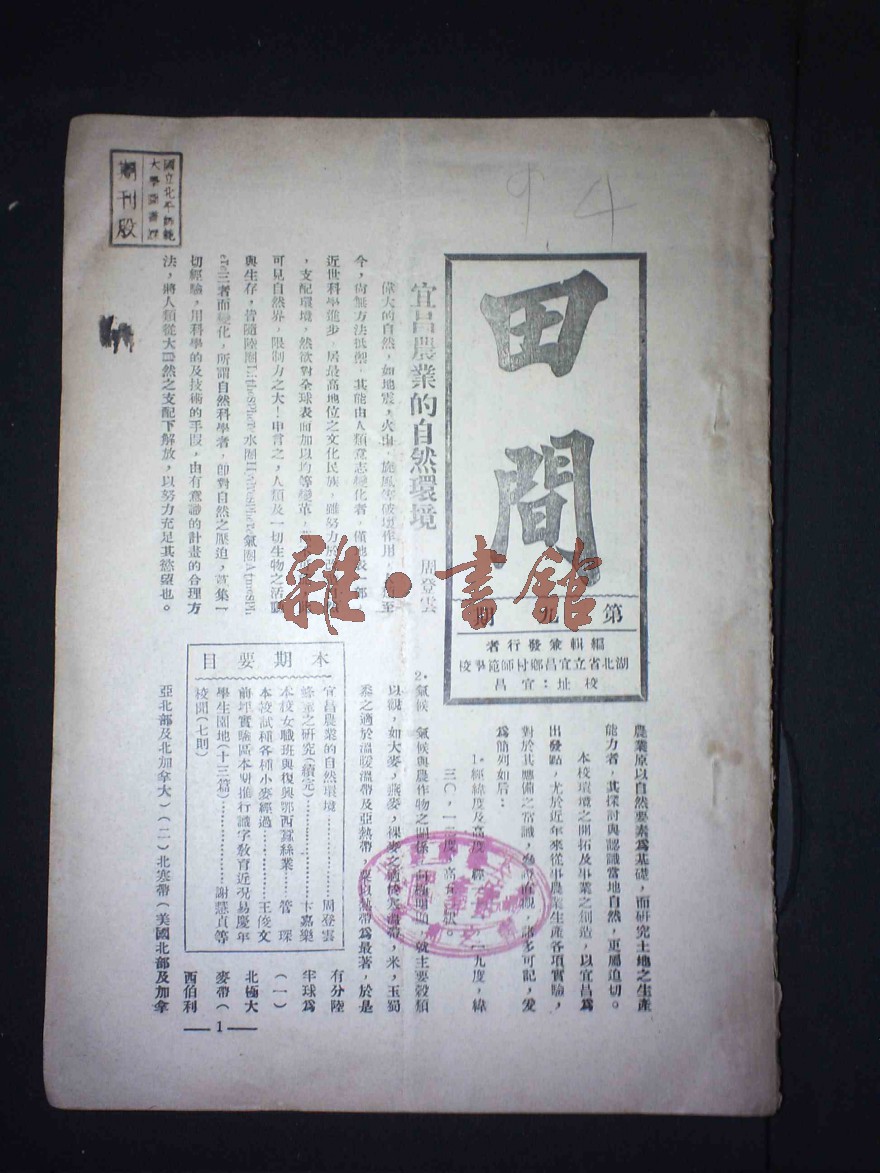 94
田間
第九期
編輯兼發行者
湖北省立宜昌鄉村師範學校
校址：宜昌
國立北平師範
大學圖書館
期刊股
宜昌農業的自然環境　周登雲
偉大的自然，如地震，火山，旋風等破壞作用，
今，尚無方法抵禦，其能由人類意志變化者，僅地表一部
近世科學進步，居最高地位之文化民族，雖努力於
，支配環境，然欲對全球表面加以均等變革，
可見自然界，限制力之大！申言之，人類及一切生物之活動
與生存，皆隨陸圈Lithosphere水圈Hydrosphere氣圈Atmosph
ere三者而變化，所謂自然科學者，即對自然之壓迫，蒐集一
切經驗，用科學的及技術的手段，由有意識的計畫的合理方
法，將人類從大自然之支配下解放，以努力充足其慾望也。
農業原以自然要素為基礎，而研究土地之生產
能力者，其探討與認識當地自然，更屬迫切。
本校環境之開拓及事業之創造，以宜昌為
出發點，尤於近年來從事農業生產各項實驗，
對於其應備之常識，參訪，諸多可記，爰
為簡列如后：
1．經緯度及高度　經　一九度，緯
三〇，一
2．氣候　氣候與農作物之關係，就主要穀類
以觀，如大麥，燕麥，裸麥之適於寒溫帶，米，玉蜀
黍之適於溫暖溫帶及亞熱帶，以熱帶為最著，於是
有分陸
半球為
（一）
北極大
麥帶（
西伯利
亞北部及北加拿大）（二）北寒帶（美國北部及加拿
本期要目
宜昌農業的自然環境…………周登雲
之研究（續完）…………卞嘉樂
本校女職班與復興鄂西蠶絲業……管　琛
本校試種各種小麥經過…………王俊文
前坪實驗區本期推行識字教育近況易慶年
學生園地（十三篇）…………謝慧貞等
校聞（七則）
—1—
雜·書館